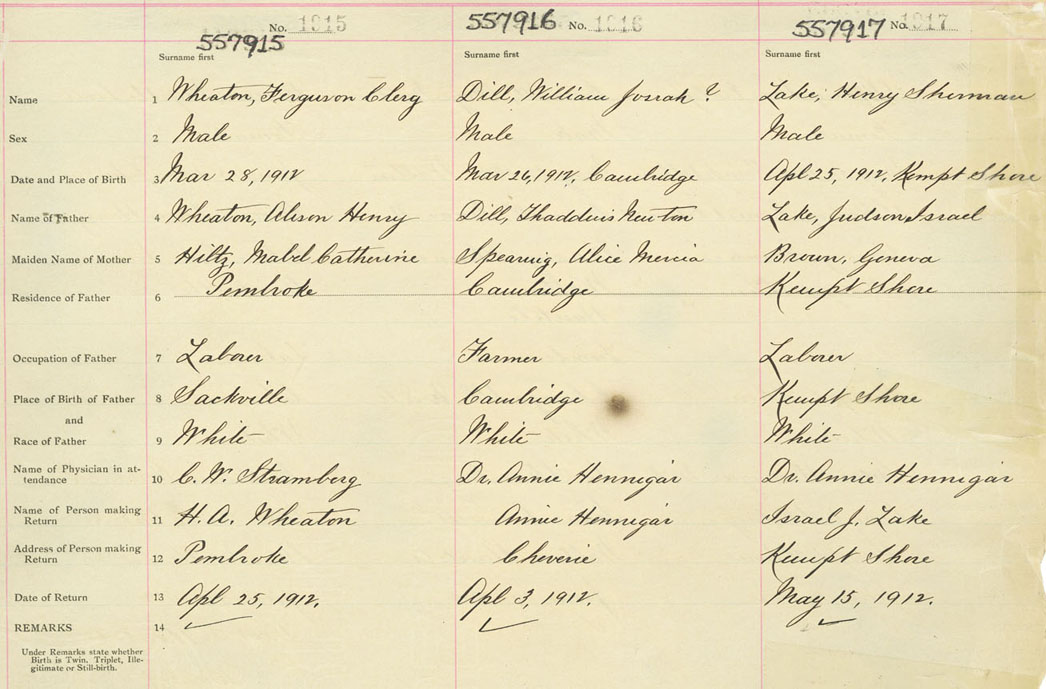 557915 No. 1015 557916 No. 1016 557917 No. 1017
Surname first Surname first Surname first
Name 1 Wheaton, Ferguson Clerg Dill, William Josiah ? Lake, Henry Sherman
Sex 2 Male Male Male
Date and Place of Birth 3 Mar 28, 1912 Mar 26, 1912, Cambridge Apl 25, 1912, Kempt Shore
Name of Father 4 Wheaton, Alison Henry Dill, Thaddius Newton Lake, Judson Israel
Maiden Name of Mother 5 Hiltz, Mabel Catherine Spearing, Alice Mercia Brown, Geneva
Residence of Father 6 Pembroke Cambridge Kempt Shore
Occupation of Father 7 Laborer Farmer Laborer
Place of Birth of Father 8 Sackville Cambridge Kempt Shore
and
Race of Father 9 White White White
Name of Physician in at-
tendance 10 C. W. Stramberg Dr. Annie Hennigar Dr. Annie Hennigar
Name of Person making
Return 11 H. A. Wheaton Annie Hennigar Israel J. Lake
Address of Person making
Return 12 Pembroke Cheverie Kempt Shore
Date of Return 13 Apl 25, 1912. Apl 3, 1912. May 15, 1912.
REMARKS 14
Under Remarks state whether
Birth is Twin, Triplet, Ille-
gitimate or Still-birth.